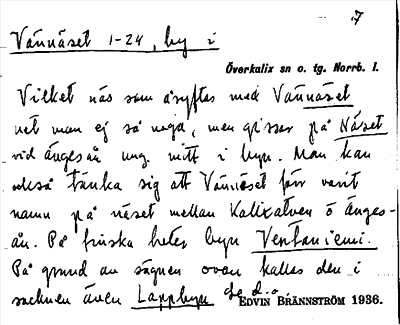 7
Vännäset 1-24, by i
Överkalix sn o. tg. Norrb. l.
Vilket näs som åsyftas med Vännäset
vet man ej så noga, men gissar på Näset
vid ängesån ung. mitt i byn. Man kan
också tänka sig att Vännäset förr varit
namn på näset mellan Kalixälven o Änges-
ån. På finska heter byn Ventäniemi.
På grund av sägnen ovan kallas den i
socknen även Lappbyn
EDVIN BRÄNNSTRÖM 1936.